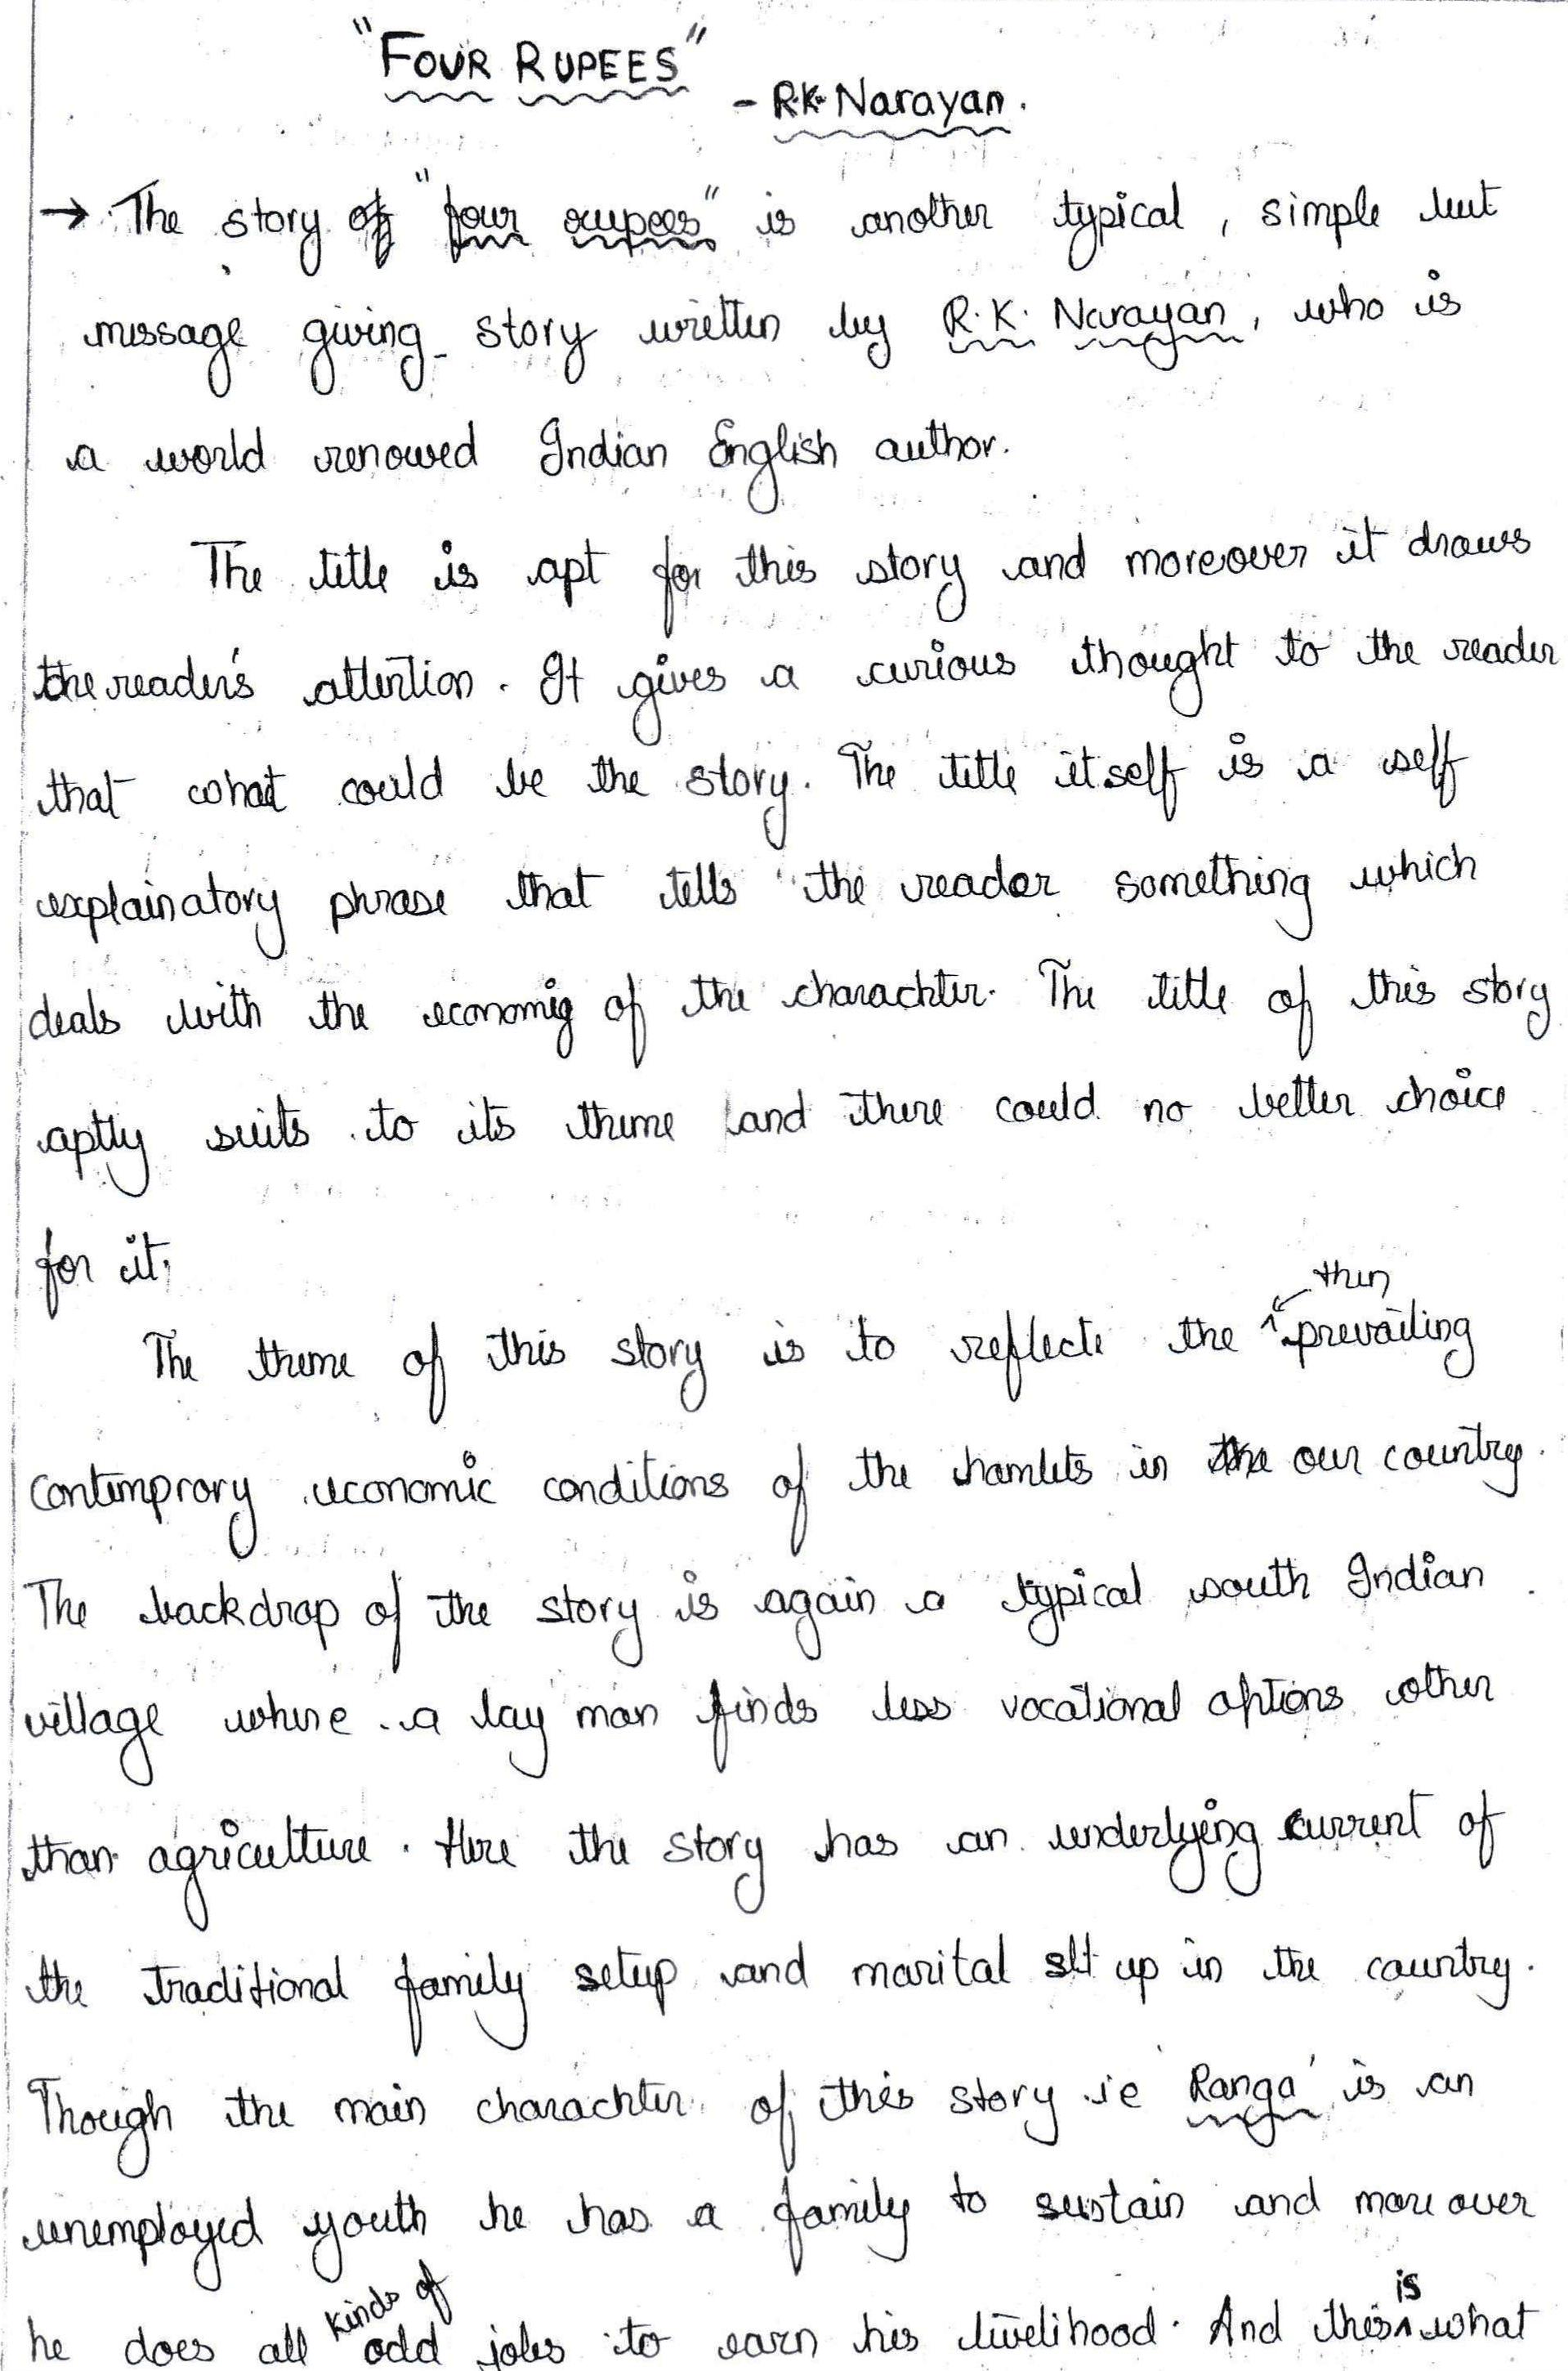 "FOUR RUPEES"
- R.K. Narayan.
→ The story of "four rupees" is another typical, simple but
message giving story written by R.K. Narayan, who is
a world renowed Indian English author.
The title is apt for this story and moreover it draws
the reader's attention. It gives a curious thought to the reader
that what could be the story. The title itself is a self
explainatory phrase that tells the reader something which
deals with the economig of the charachter. The title of this story
aptly suits to its theme and there could no better choice
for it.
then
The theme of this story is to reflect the ^ prevailing
contemprory economic conditions of the hamlets in our country.
The backdrop of the story is again a typical south Indian
village where a lay man finds less vocational options other
than agriculture. Here the story has an underlying current of
the traditional family setup and marital set up in the country.
Though the main charachter of this story ie 'Ranga' is an
unemployed youth he has a family to sustain and more over
kinds of
is
he does all odd jobs to earn his livelihood. And this ^ what